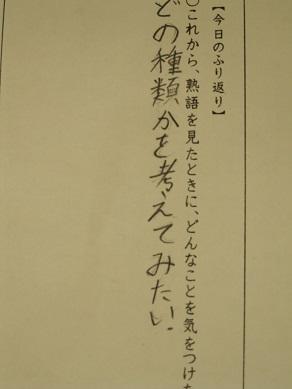 【今日のふり返り】
○これから、熟語を見たときに、どんなことを気をつけた
どの種類かを考えてみたい。